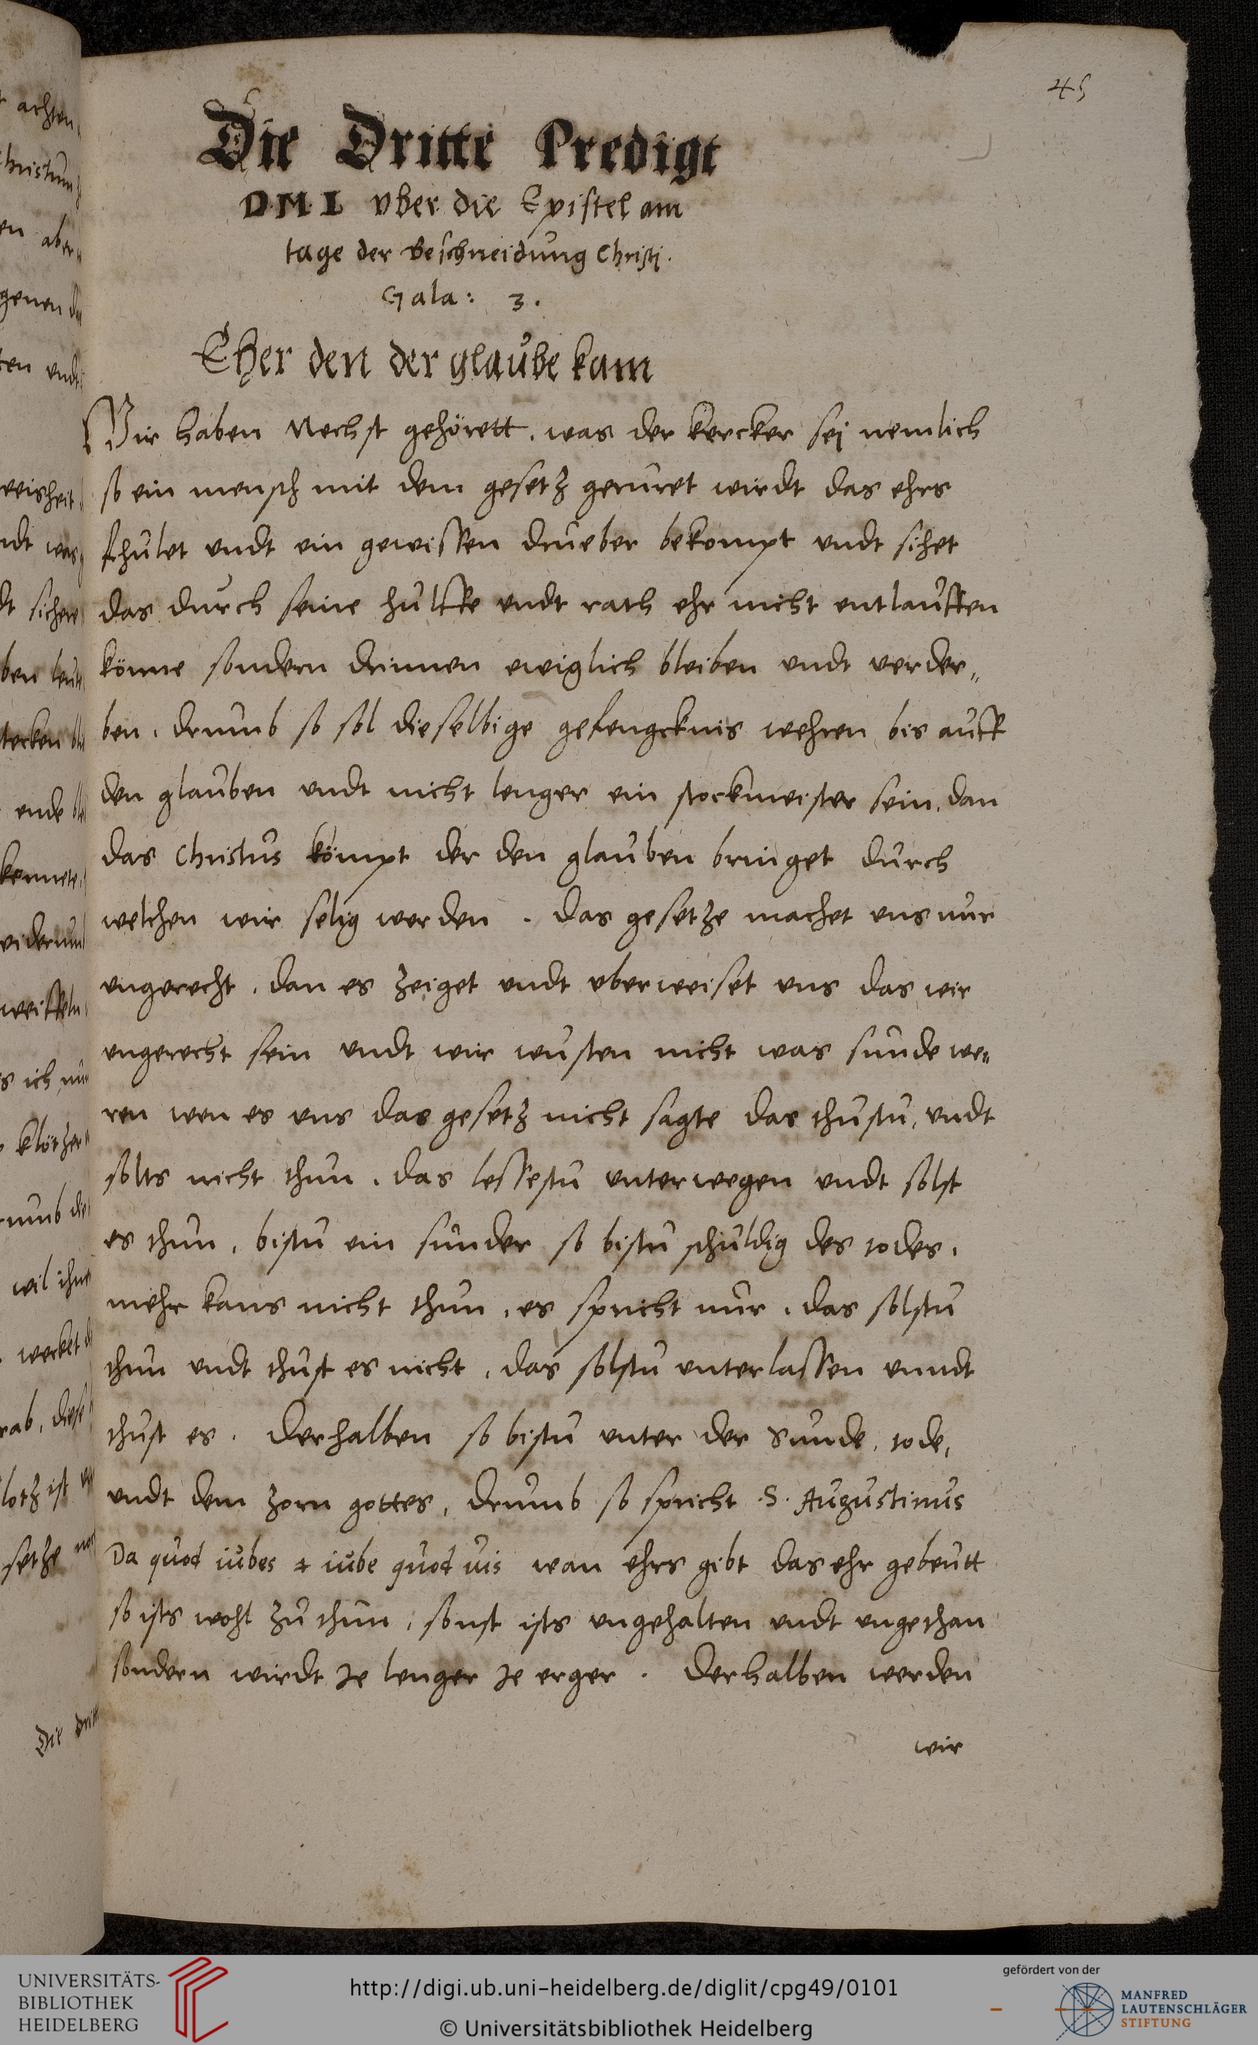 45
Die Dritte Predigt
D.M.L vber die Epistel am
tage der Beschneidung Christi.
Gala: 3.
Eher den der glaube kam
Wir haben Nechst gehörett, was der kercker sej nemlich
so ein mensch mit dem gesetz geruret wirdt das ehrs
fhulet vndt ein gewissen drueber bekompt vndt sihet
das durch seine hulffe vndt rath ehr nicht entlauffen
könne sondern drinnen ewiglich bleiben vndt verder„
ben, drumb so sol dieselbige gefengcknis wehren bis auff
den glauben vndt nicht lenger ein stockmeister sein, dan
das Christus kömpt der den glauben bringet durch
welchen wir selig werden . das gesetze machet vns nur
vngerecht, dan es zeiget vndt vberweiset vns das wir
vngerecht sein vndt wir wusten nicht was sunde we„
ren wen es vns das gesetz nicht sagte das thustu, vndt
solts nicht thun, das lessestu vnterwegen vndt solst
es thun, bistu ein sunder so bistu schuldig des todes,
mehr kans nicht thun, es spricht nur, das solstu
thun vndt thust es nicht, das solstu vnterlassen vnndt
thust es. derhalben so bistu vnter der Sunde, tode,
vndt dem zorn gottes, drumb so spricht .S. Augustinus
Da quod iubes & iube quod uis wan ehrs gibt das ehr gebeutt
so ists wohl zu thun, sonst ists vngehalten vndt vngethan
sondern wirdt Je lenger Je erger . derhalben werden
wir
achten
Christum
en aber
genen
ten vndt
weisheit
ndt was
dt sicher
ende
wideru
s ich nu
klötzer
umb die
wil ihn
wecket
rab, diese
lotz ist
setze
Die Dritt
UNIVERSITÄTS-
BIBLIOTHEK
HEIDELBERG
http://digi.ub.uni-heidelberg.de/diglit/cpg49/0101
© Universitätsbibliothek Heidelberg
gefördert von der
MANFRED
LAUTENSCHLÄGER
STIFTUNG